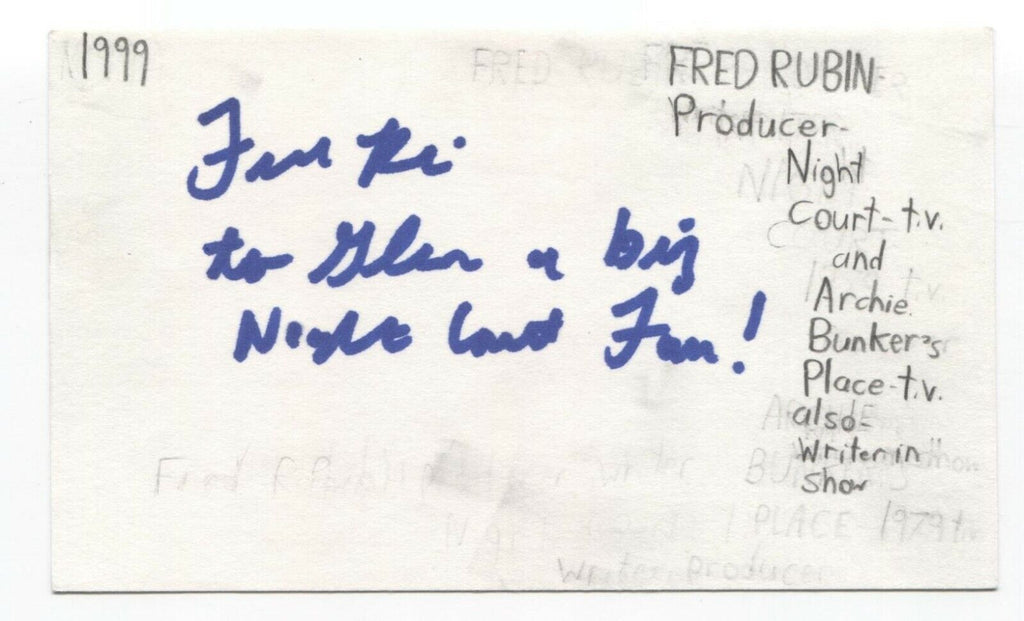 1999
FRED RUBIN
Producer-
Night
Court-t.v.
and
Archie
Bunker's
Place-t.v.
also-
Writer in
Show
to Glen a big
Night Court Fan!
FRED
BUNKERS
PLACE 1979 t.v.
Writer Producer